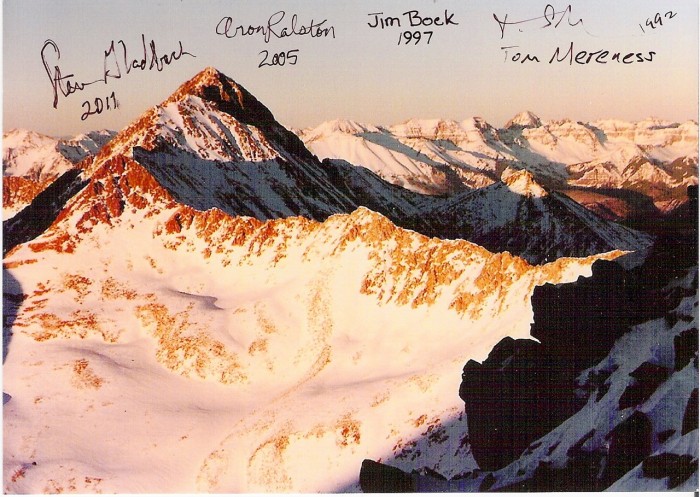 Steve Gladbach
2011
Aron Ralston
2005
Jim Bock
1997
1992
Tom Mereness